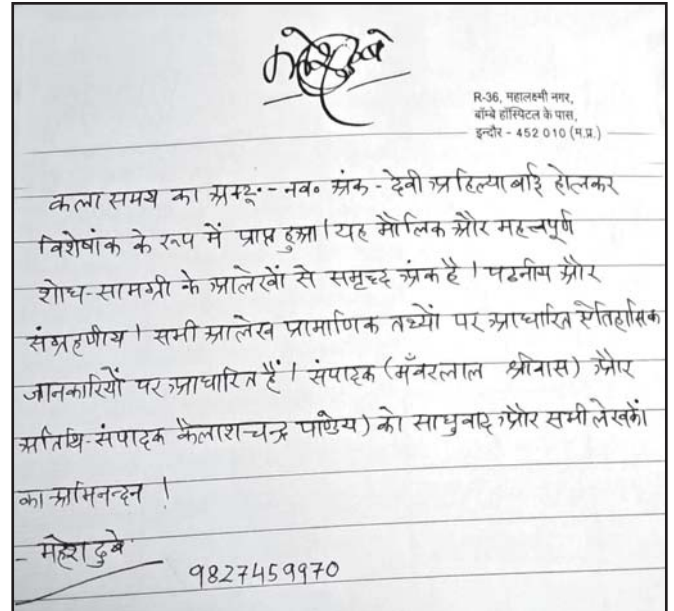 महेश दुबे
R-36, महालक्ष्मी नगर,
बॉम्बे हॉस्पिटल के पास,
इन्दौर - 452 010 (म.प्र.)
कला समय का अक्टू.- नव॰ अंक - देवी अहिल्याबाई होलकर
विशेषांक के रूप में प्राप्त हुआ। यह मौलिक और महत्वपूर्ण
शोध-सामग्री के आलेखों से समृध्द अंक है। पठनीय और
संग्रहणीय। सभी आलेख प्रामाणिक तथ्यों पर आधारित ऐतिहासिक
जानकारियों पर आधारित हैं। संपादक (भँवरलाल श्रीवास) और
अतिथि-संपादक कैलाशचन्द्र पाण्डेय) को साधुवाद और सभी लेखकों
का अभिनन्दन !
- महेश दुबे
9827459970